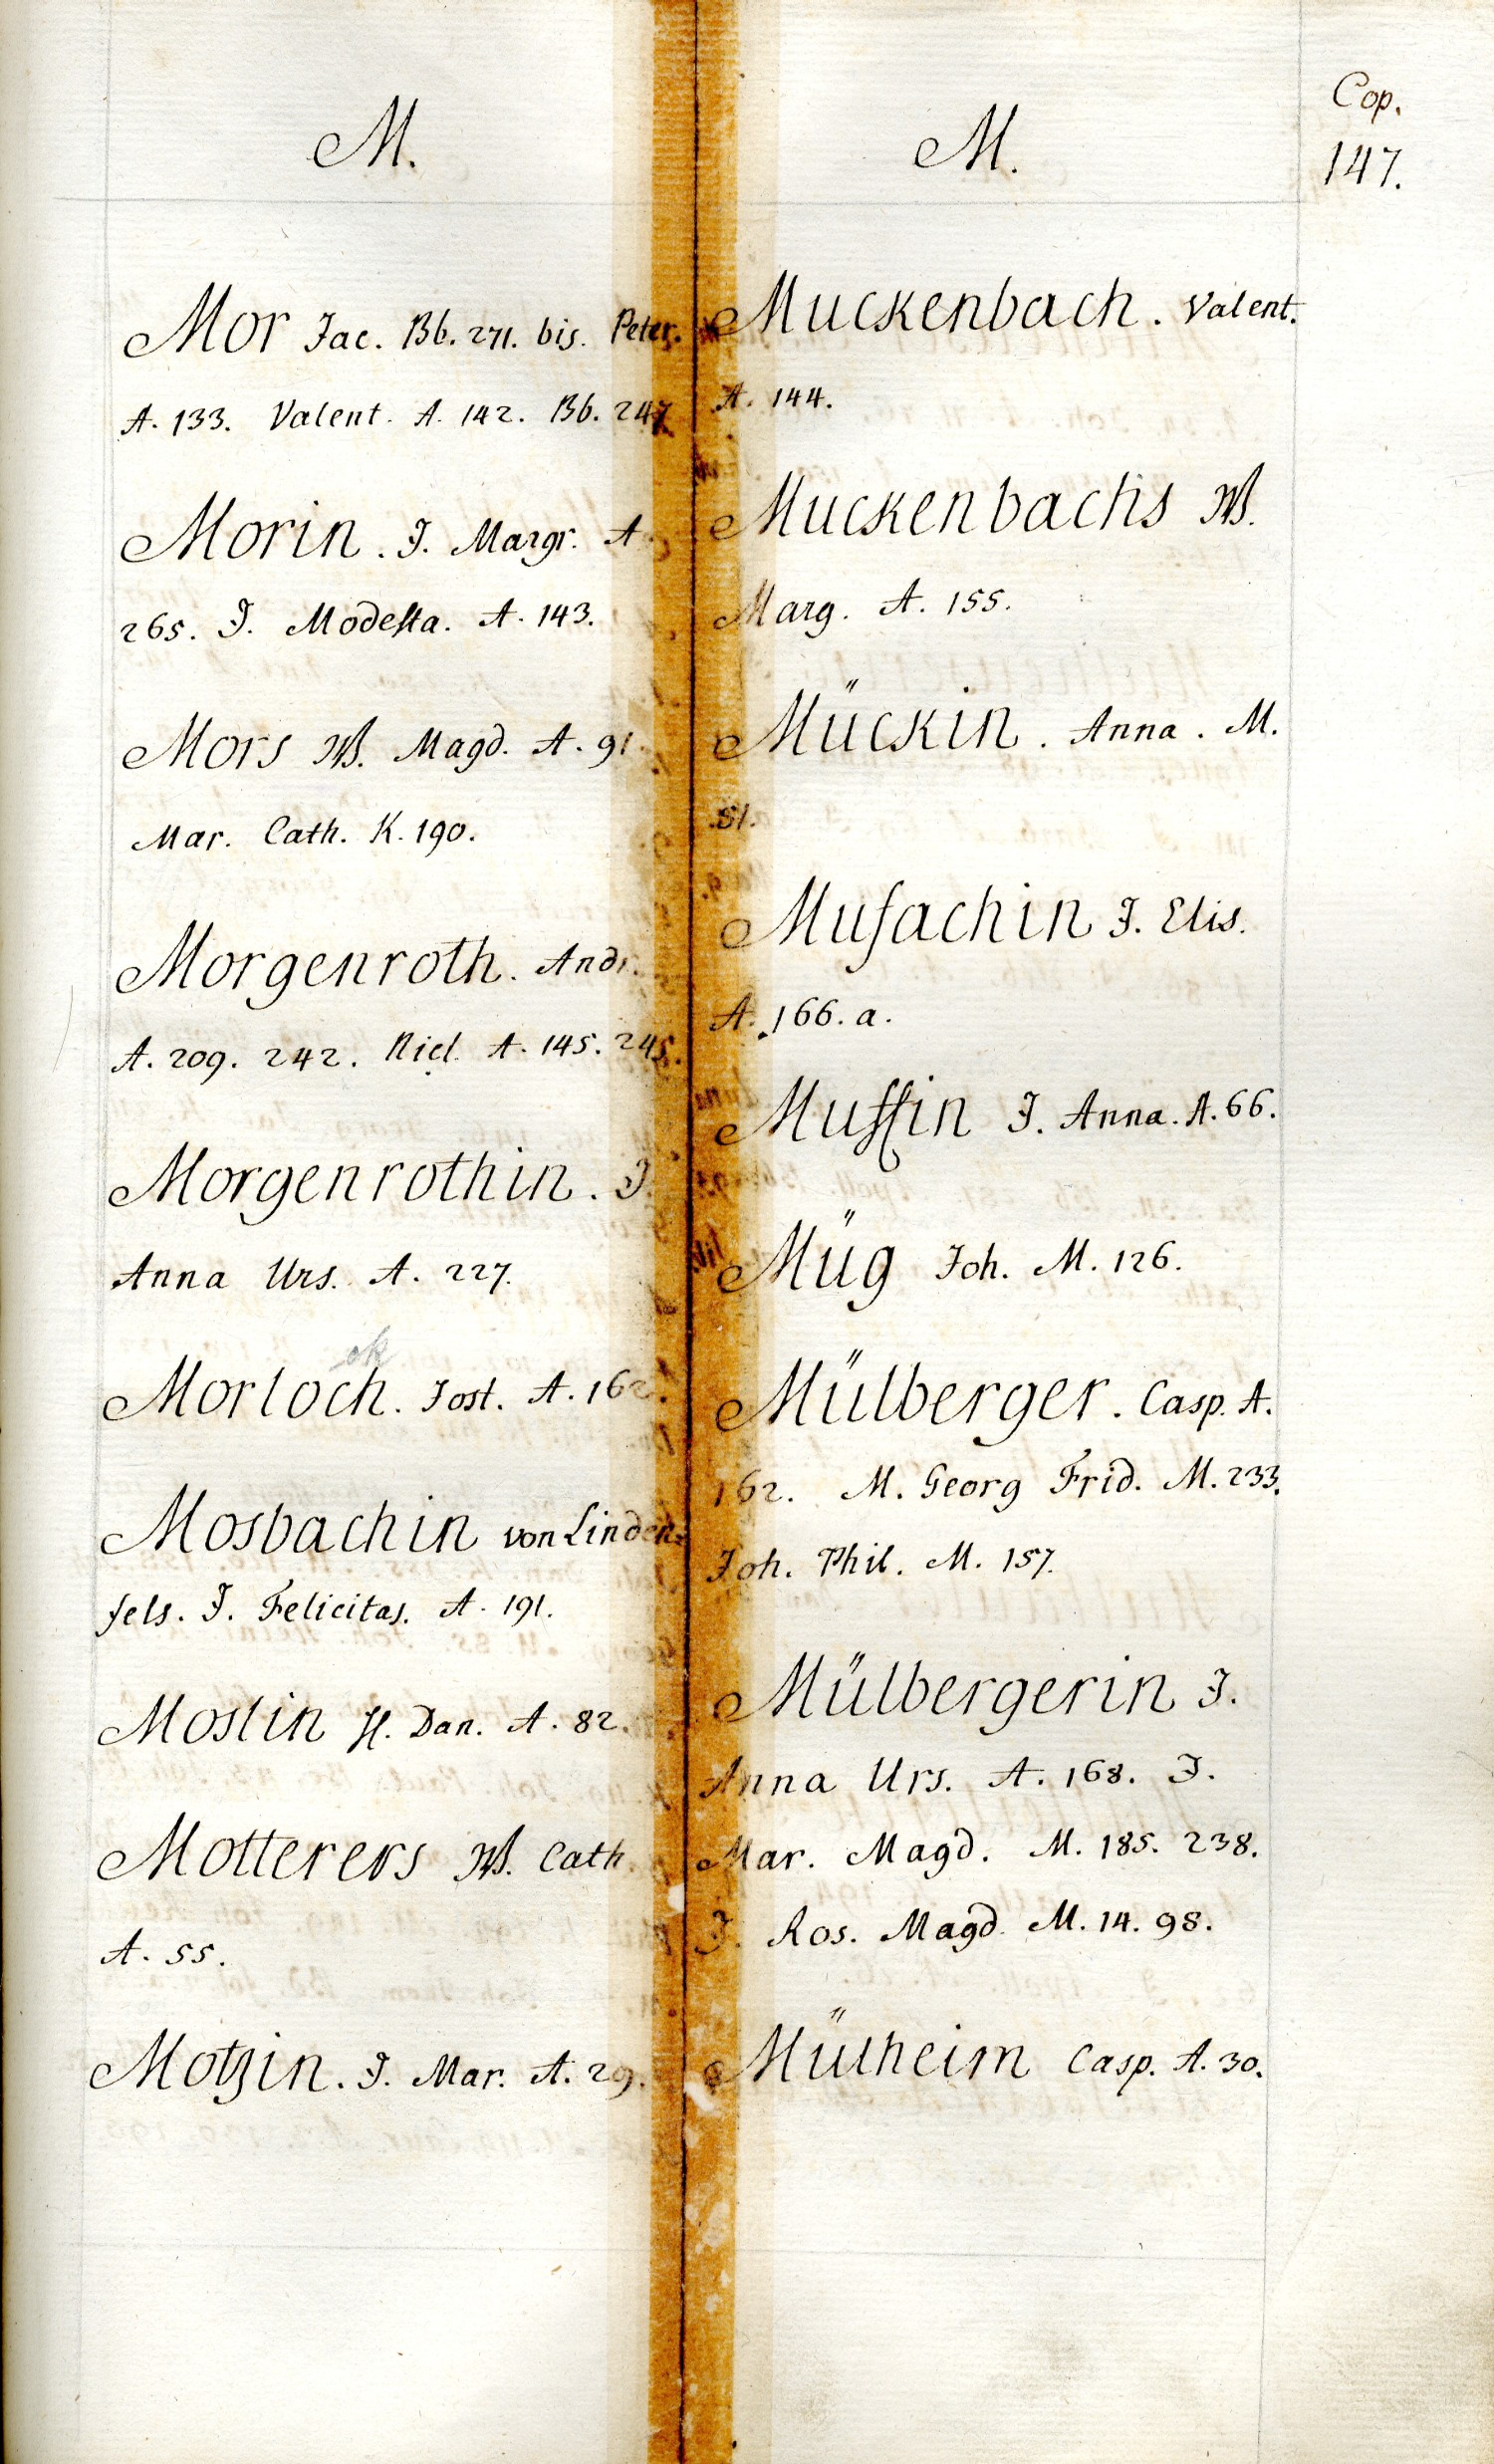 Cop.
147.
M.
Mor Jac. Bb. 271. bis. Peter.
A. 133. Valent. A. 142. Bb. 247
Morin. J. Margr. A.
265. J. Modesta. A. 143.
Mors W. Magd. A. 91.
Mar. Cath. K. 190.
Morgenroth. Andr.
A. 209. 242. Nicl. A. 145. 245.
Morgenrothin. J.
Anna Urs. A. 227.
ok
Morloch. Jost. A. 162.
Mosbachin von Linden-
fels. J. Felicitas. A. 191.
Moslin H. Dan. A. 82.
Motterers W. Cath.
A. 55.
Motzin. J. Mar. A. 29.
M.
Muckenbach. Valent.
A. 144.
Muckenbachs W.
Marg. A. 155.
Mückin. Anna. M.
51.
Musachin J. Elis.
A. 166. a.
Mussin J. Anna. A. 66.
Müg Joh. M. 126.
Mülberger. Casp. A.
162. M. Georg Frid. M. 233.
Joh. Phil. M. 157.
Mülbergerin J.
Anna Urs. A. 168. J.
Mar. Magd. M. 185. 238.
J. Ros. Magd. M. 14. 98.
Mülheim Casp. A. 30.